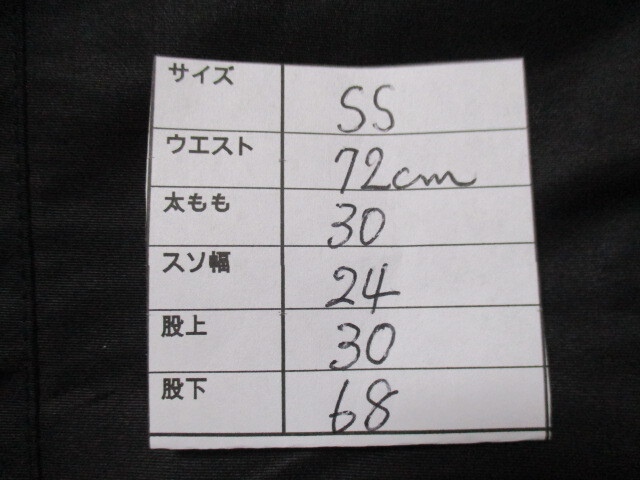 サイズ SS
ウエスト 72cm
太もも 30
スソ幅 24
股上 30
股下 68